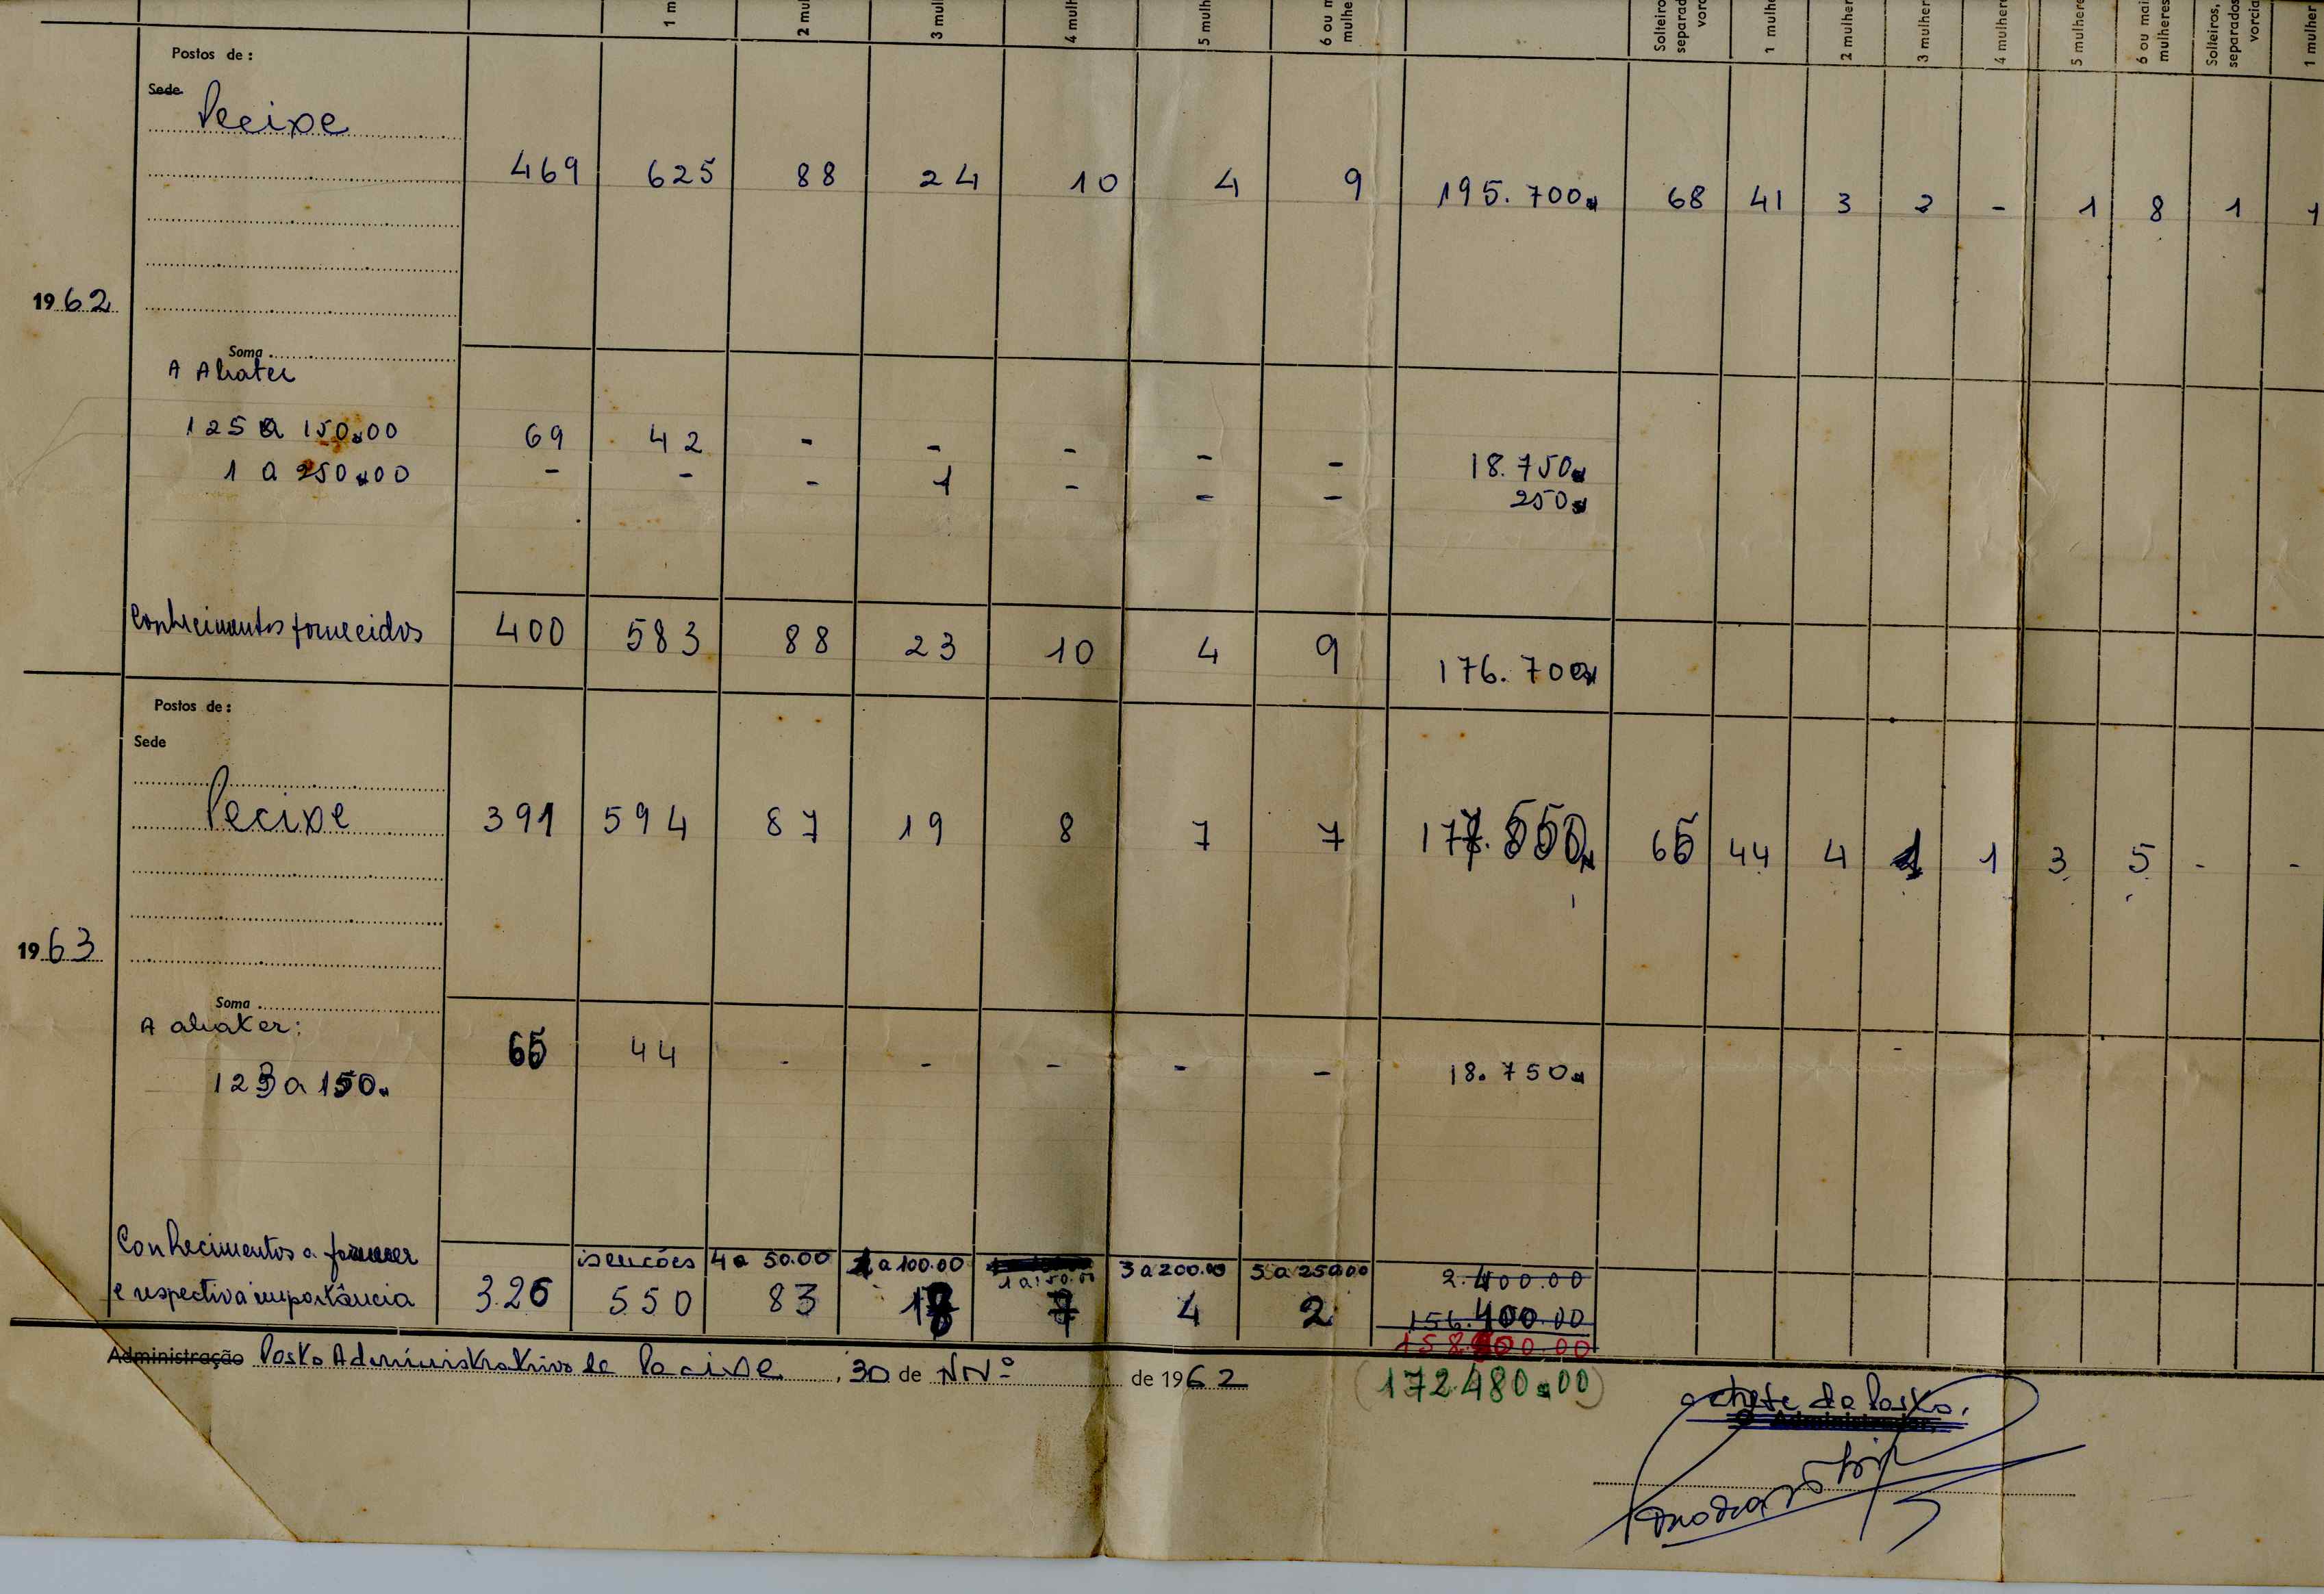 1 m 2 mul 3 mul 4 mulh 5 mulh 6 ou m mulhe Solteiro separad vorc 1 mulhe 2 mulher 3 mulher 4 mulhere 5 mulhere 6 ou mai mulheres Solteiros, separados vorcia 1 mulher
Postos de :
Sede
Pecixe
469 625 88 24 10 4 9 195.700$ 68 41 3 2 - 1 8 1 1
1962
Soma
A Abater
125 a 150$00 69 42 - - - - - 18.750$
1 a 250$00 - - - 1 - - - 250$
Conhecimentos fornecidos 400 583 88 23 10 4 9 176.700$
Postos de :
Sede
Pecixe 391 594 87 19 8 7 7 65 44 4 1 1 3 5 - -
1963
Soma
A abater: 65 44 - - - - - 18.750$
a 150$
Conhecimentos a fornecer isenções 4 a 50.00 1 a 100.00 1 a 150.00 3 a 200.00 5 a 250.00 2.400.00
e respectiva importância 326 550 83 18 7 4 2 156.400.00
Administração Posto Administrativo de Pecixe, 30 de NNº de 1962 (172.480$00)
o chefe do Posto,
O Administrador,